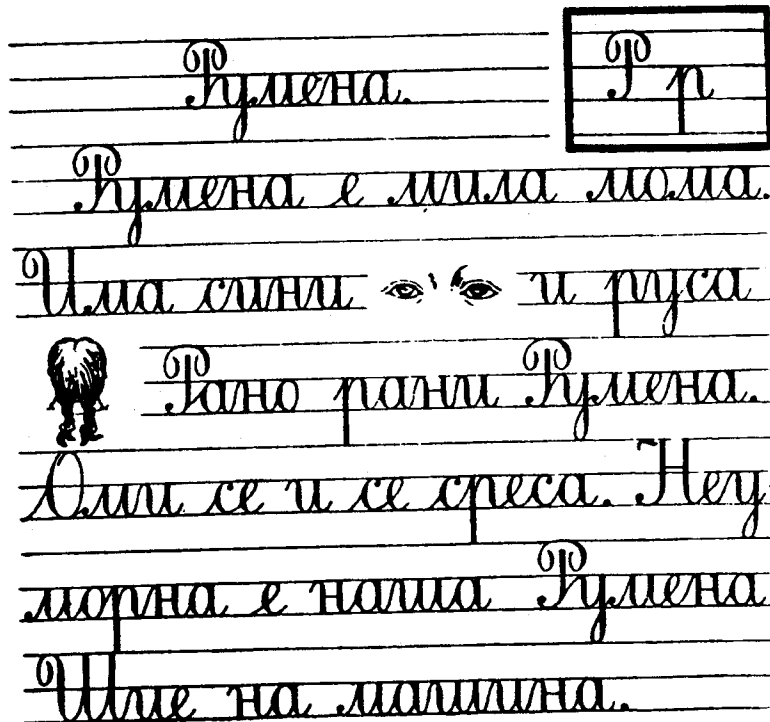 Румена.
Р р
Румена е мила мома.
Има сини и руса
Рано рани Румена.
Оми се и се среса. Неу
морна е наша Румена
Шие на машина.